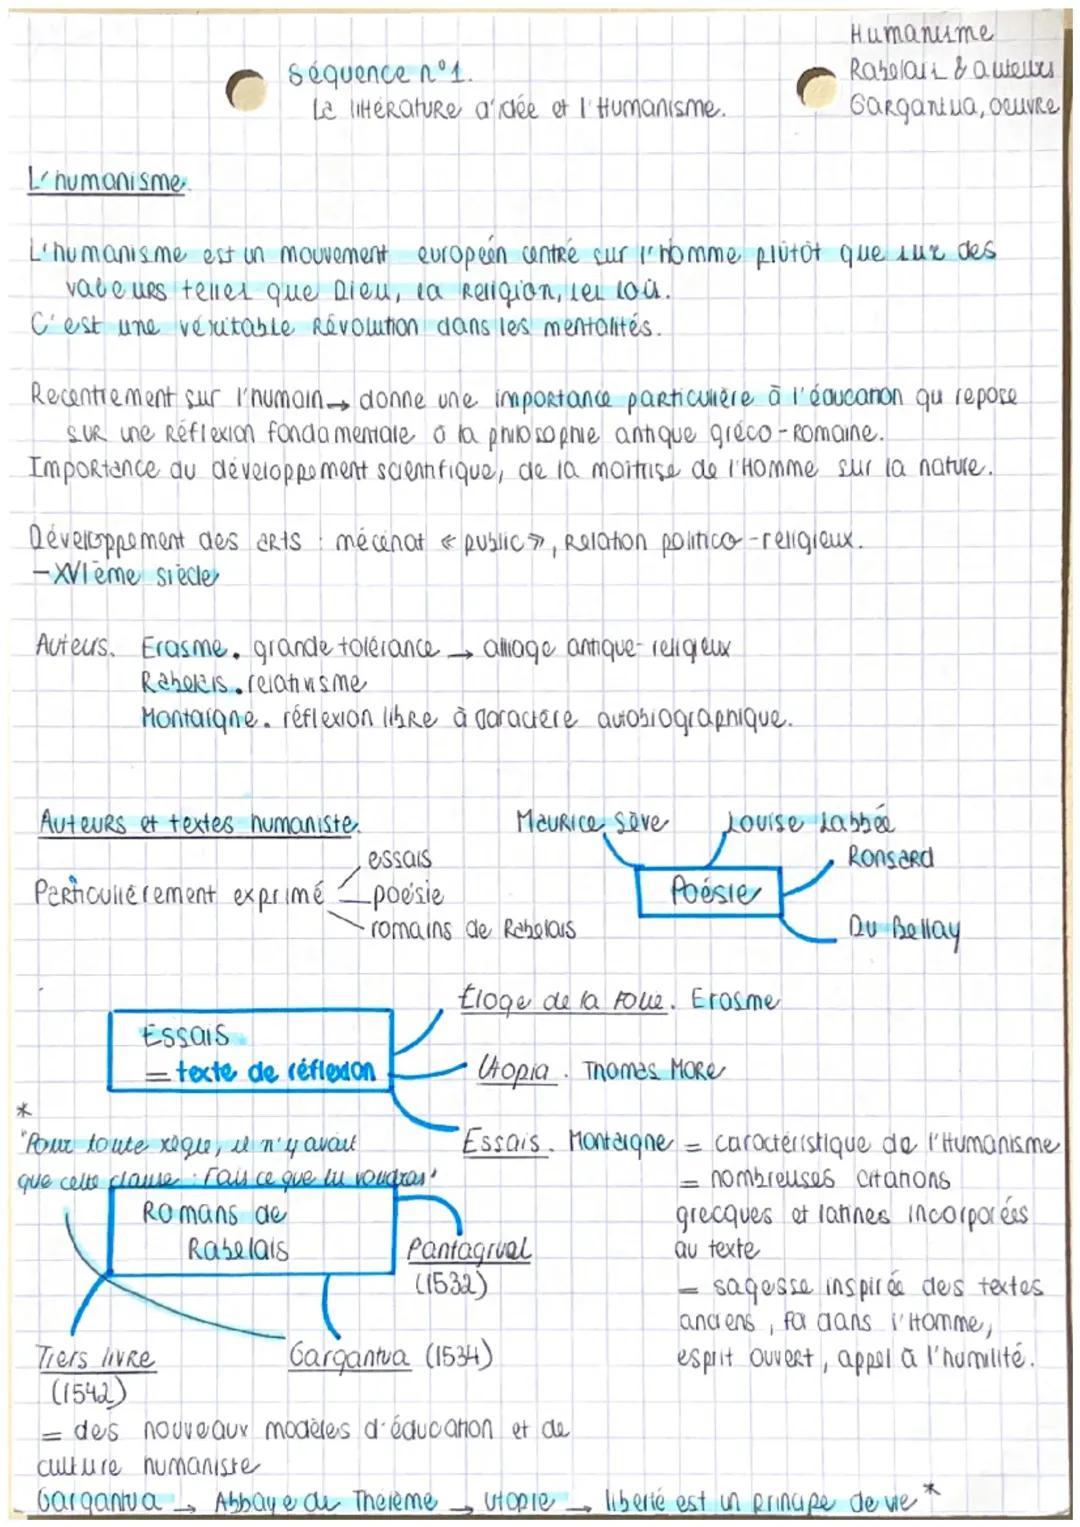 Humanisme
Rabelais & auteurs
Gargantua, oeuvre
Séquence n°1.
La littérature d'idée et l'Humanisme.
L'humanisme.
L'humanisme est un mouvement européen centré sur l'homme plutôt que sur des
valeurs telles que Dieu, la Religion, les lois.
C'est une véritable Révolution dans les mentalités.
Recentrement sur l'humain → donne une importance particulière à l'éducation qu repose
sur une Réflexion fondamentale à la philosophie antique gréco-Romaine.
Importance du développement scientifique, de la maîtrise de l'Homme sur la nature.
Développement des arts : mécénat « public », Relation politico-religieux.
- XVIème siècle
Auteurs. Erasme. grande tolérance → alliage antique-religieux
Rabelais. relativisme
Montaigne. réflexion libre à caractère autobiographique.
Auteurs et textes humaniste.
Particulièrement exprimé
essais
poésie
romains de Rabelais
Maurice Sève
Louise Labbée
Ronsard
Poésie
Du Bellay
Essais
= texte de réflexion
Éloge de la Folie. Erasme
Utopia. Thomas More
Essais. Montaigne = caractéristique de l'Humanisme
= nombreuses citations
grecques et latines incorporées
au texte
= sagesse inspirée des textes
anciens, foi dans l'Homme,
esprit ouvert, appel à l'humilité.
*
"Pour toute règle, il n'y avait
que cette clause : Fais ce que tu voudras"
Romans de
Rabelais
Pantagruel
(1532)
Tiers livre
(1542)
Gargantua (1534)
= des nouveaux modèles d'éducation et de
culture humaniste
Gargantua → Abbaye de Thélème → utopie → liberté est un principe de vie *